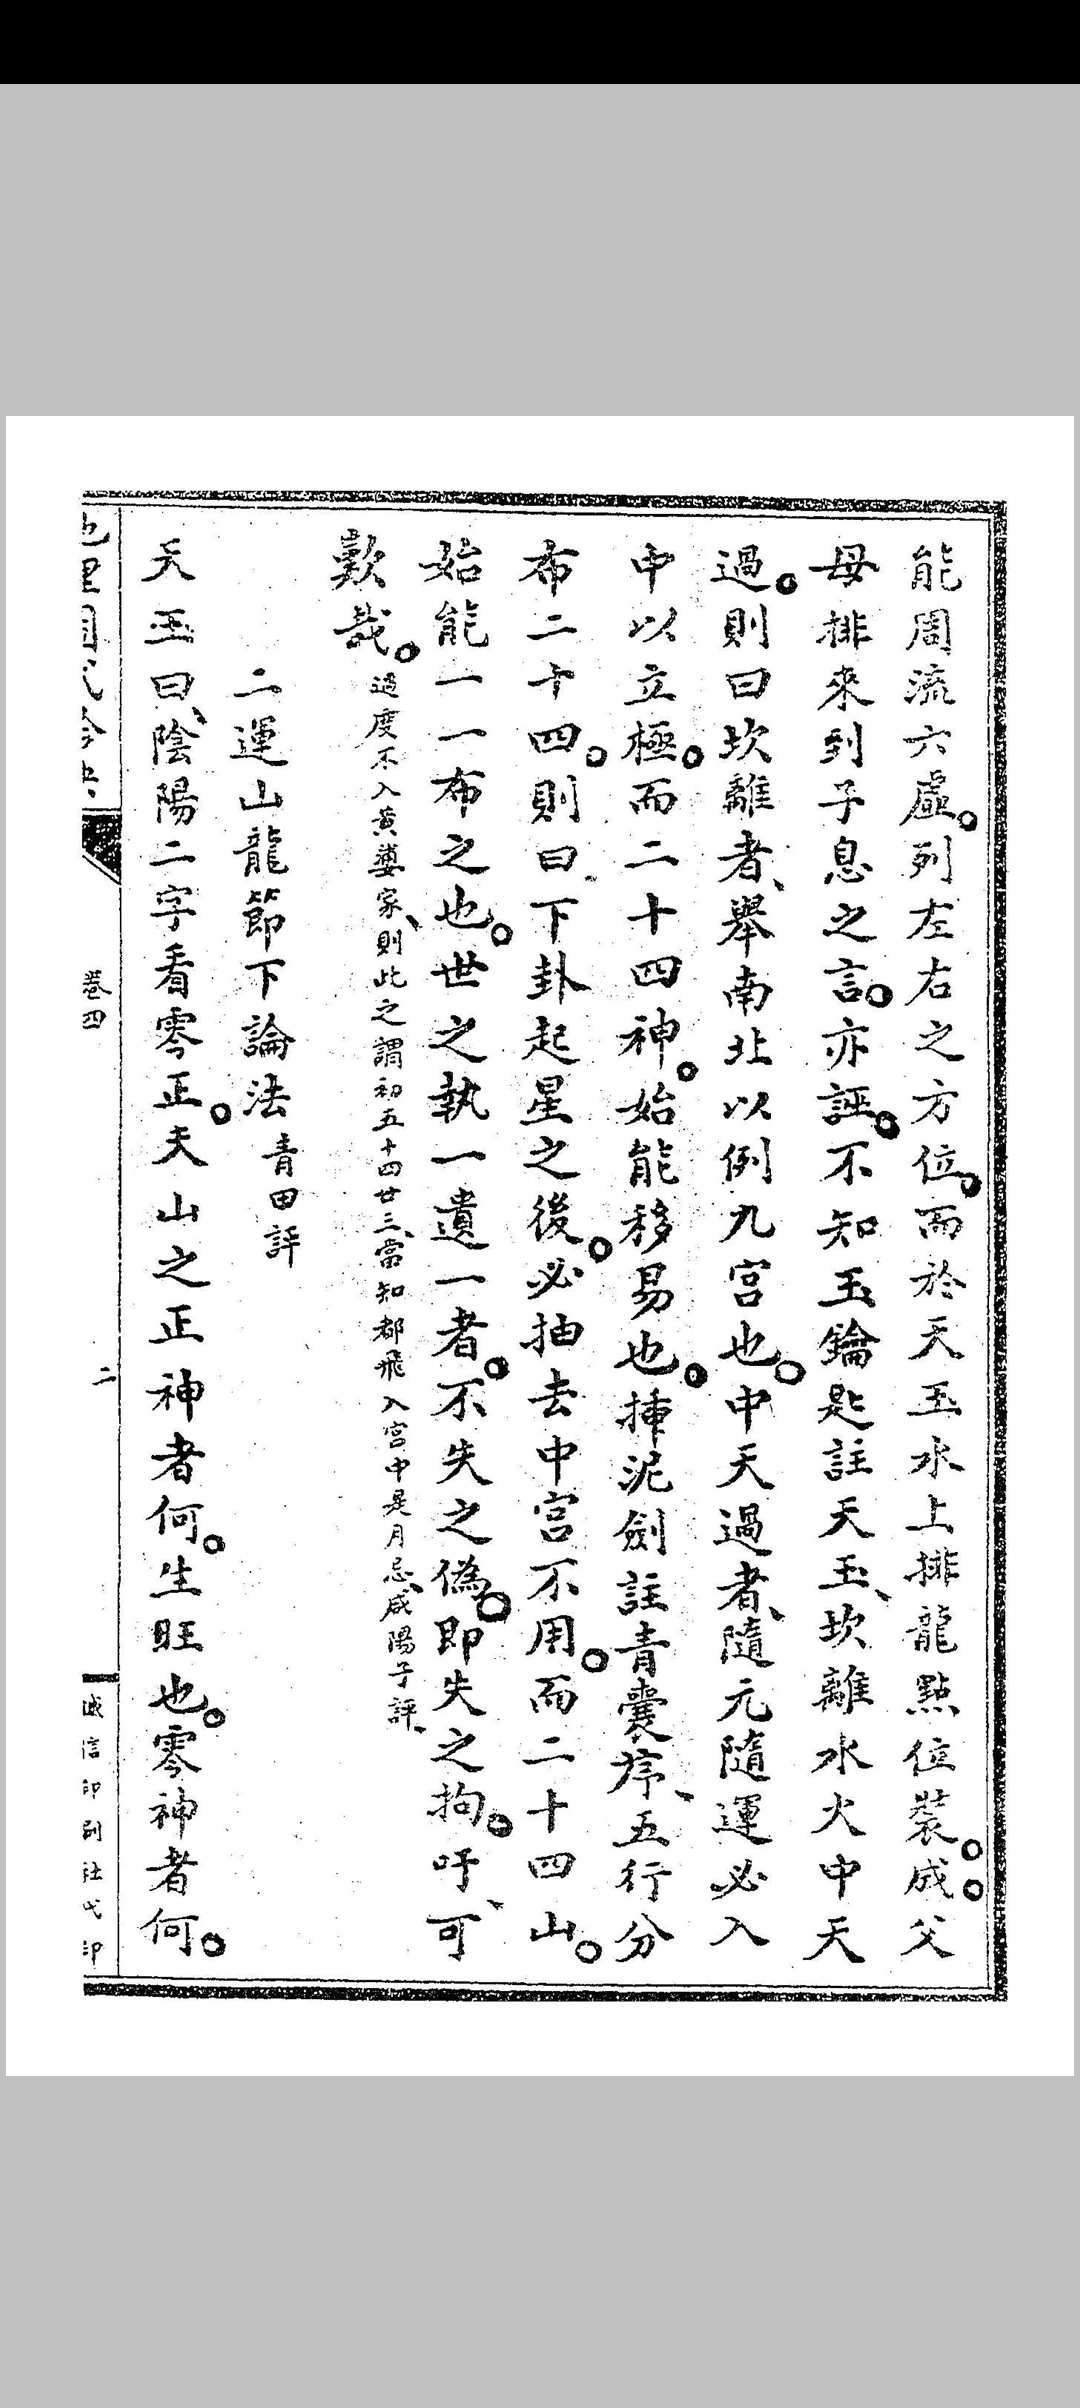 能周流六虛。列左右之方位。而於天玉水上排龍點位裝成。父
母排來到子息之言。亦誣。不知玉鑰匙註天玉、坎離水火中天
過。則曰坎離者、舉南北以例九宮也。中天過者、隨元隨運必入
中以立極。而二十四神。始能移易也。揷泥劍註青囊序、五行分
布二十四。則曰下卦起星之後。必抽去中宮不用。而二十四山。
始能一一布之也。世之執一遺一者。不失之偽。即失之拘。吁、可
歎哉。過度不入黃婆家、則此之謂初五十四廿三、當知都飛入宮中是月忌、咸陽子評、
二運山龍節下論法 青田評
天玉曰、陰陽二字看零正。夫山之正神者何。生旺也。零神者何。
卷四
二
誠信印刷社代印